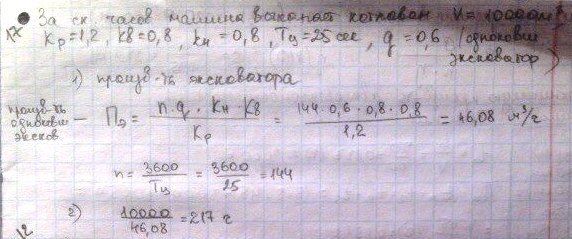 За ск. часов машина выкопает котлован V = 10000 м³
Kр=1,2, kв=0,8, kн=0,8, Tц=25 сек, q=0,6 (одноковш
экскаватор)
1) произв-ть эксковатора
произв-ть
одноковш
эксков
— Пэ = n·q·Kн·Kв / Kр = 144·0,6·0,8·0,8 / 1,2 = 46,08 м³/г
n = 3600 / Tц = 3600 / 25 = 144
2) 10000 / 46,08 = 217 г
12